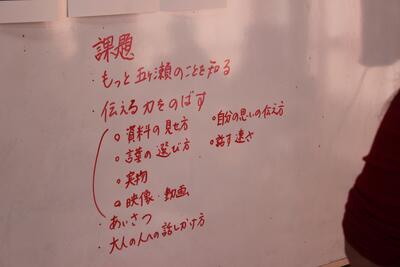 課題
・もっと五ヶ瀬のことを知る
・伝える力をのばす
○資料の見せ方
○自分の思いの伝え方
○言葉の選び方
○話す速さ
○実物
○映像・動画
・あいさつ
・大人の人への話しかけ方